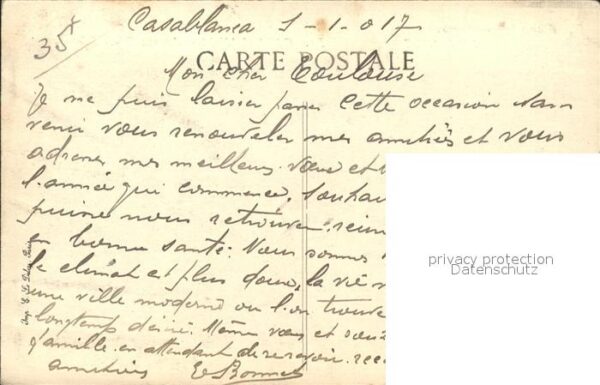 35x
Casablanca 1-1-017
CARTE POSTALE
Mon cher Toulouse
Je ne puis laisser passer cette occasion sans
venir vous renouveler mes amitiés et vous
adresser mes meilleurs voeux et
l'année qui commence. Souhai
nous retrouver reuni
en bonne santé. Vous sommes
le climat et plus doux, la vie
une ville moderne ou l'on trouve
longtemp désiré. Même voeux et
famille en attendant de revoir rece
amitiés E Bonnet
privacy protection
Datenschutz